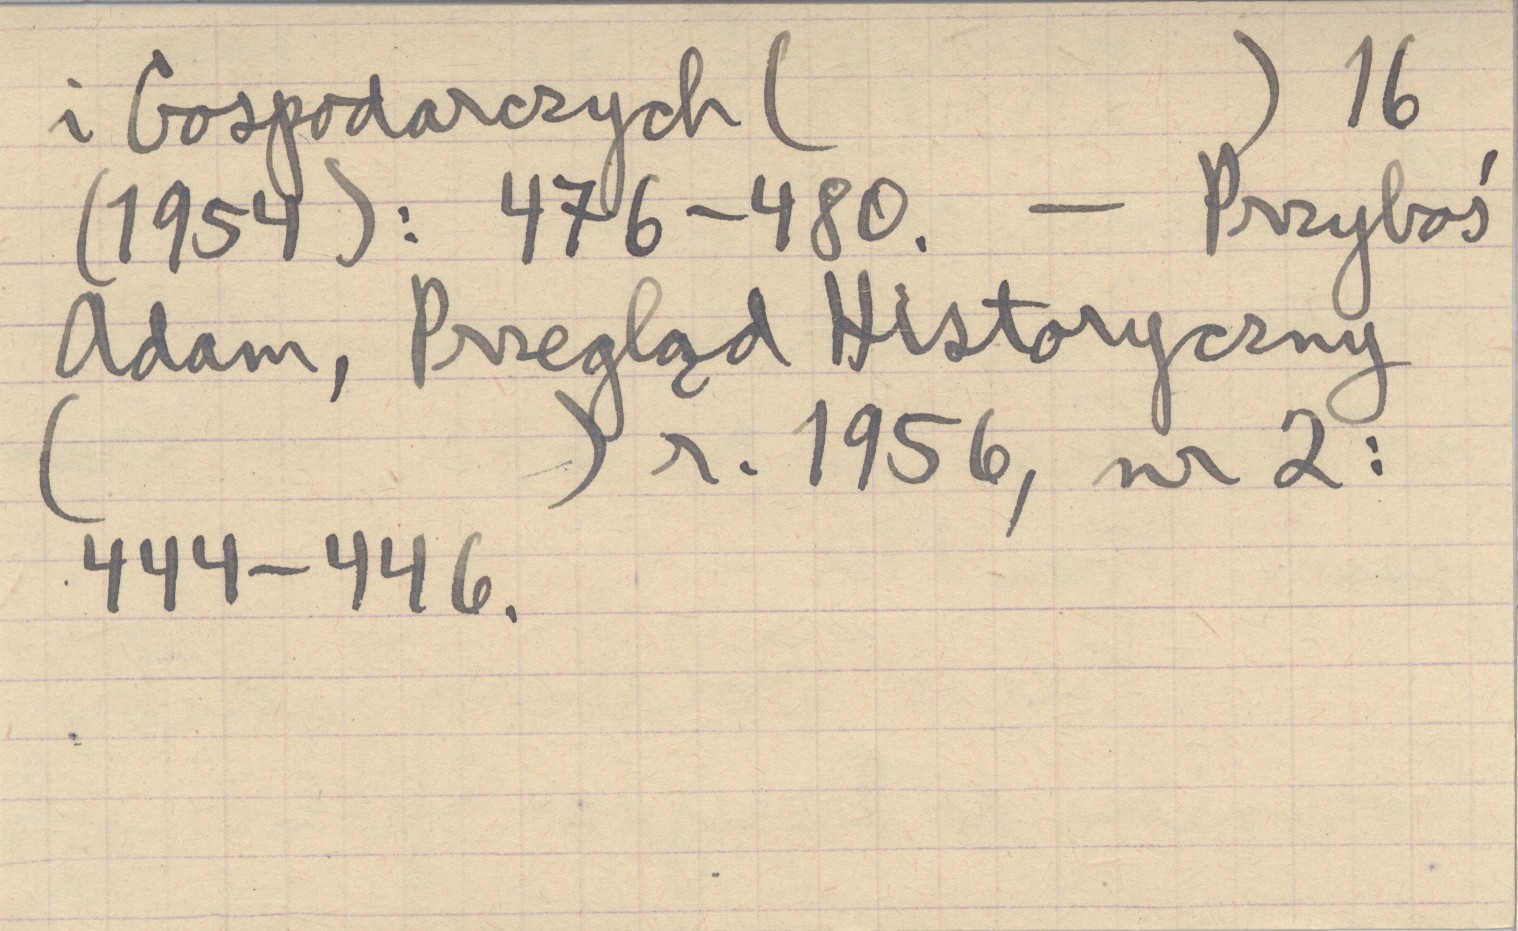 i Gospodarczych (                    ) 16
(1954): 476-480. — Przyboś
Adam, Przegląd Historyczny
(                    ) r. 1956, nr 2:
444-446.